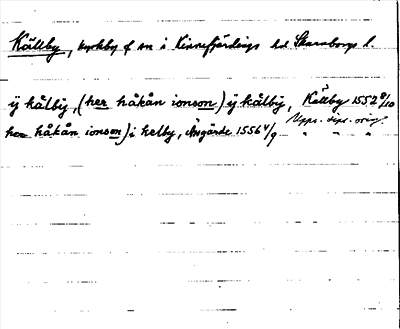 Källby, kyrkby f sn i Kinnefjärdings hd Skaraborgs l.
ij kålbij, (her håkån ionson) ij kålbij, Källby 1552 8/10
Upps. dipl. orig.
her håkån ionson) i kelby, Ängärde 1556 4/9 " " "